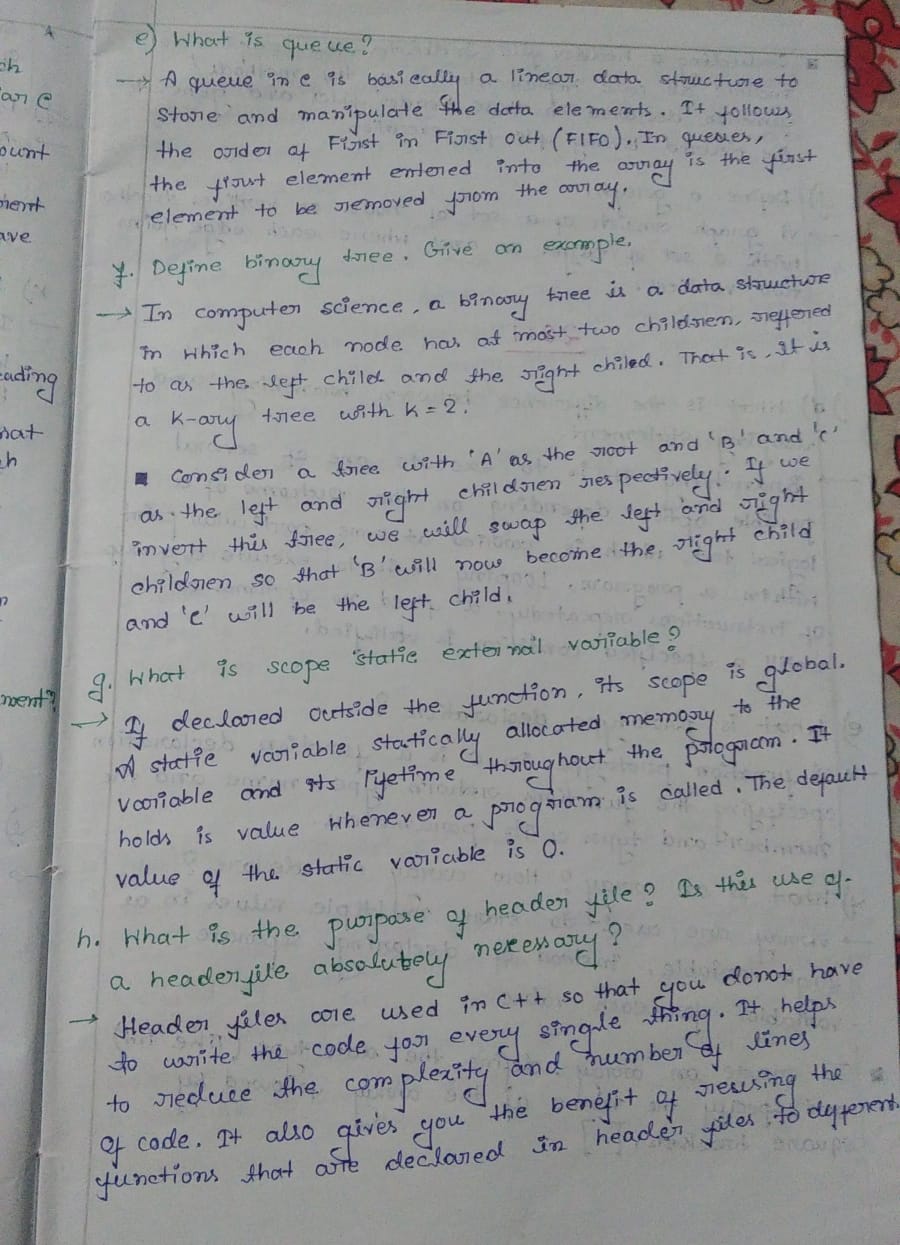 e) What is queue?
→ A queue in c is basically a linear data structure to
store and manipulate the data elements. It follows
the order of First in First out (FIFO). In queues,
the first element entered into the array is the first
element to be removed from the array.
f. Define binary tree. Give an example.
→ In computer science, a binary tree is a data structure
in which each node has at most two children, reffered
to as the left child and the right chiled. That is, it is
a K-ary tree with K = 2.
▪ Consider a tree with 'A' as the root and 'B' and 'C'
as the left and right children respectively. If we
invert this tree, we will swap the left and right
children so that 'B' will now become the right child
and 'C' will be the left child.
g. What is scope static external variable?
→ If declared outside the function, its scope is global.
A static variable statically allocated memory to the
variable and its lifetime throughout the program. It
holds is value whenever a program is called. The default
value of the static variable is 0.
h. What is the purpose of header file? Is this use of
a headerfile absolutely necessary?
→ Header files are used in C++ so that you donot have
to write the code for every single thing. It helps
to reduce the complexity and number of lines
of code. It also gives you the benefit of reusing the
functions that are declared in header files to different
ch
ount
ment
ave
eading
hat
ment?